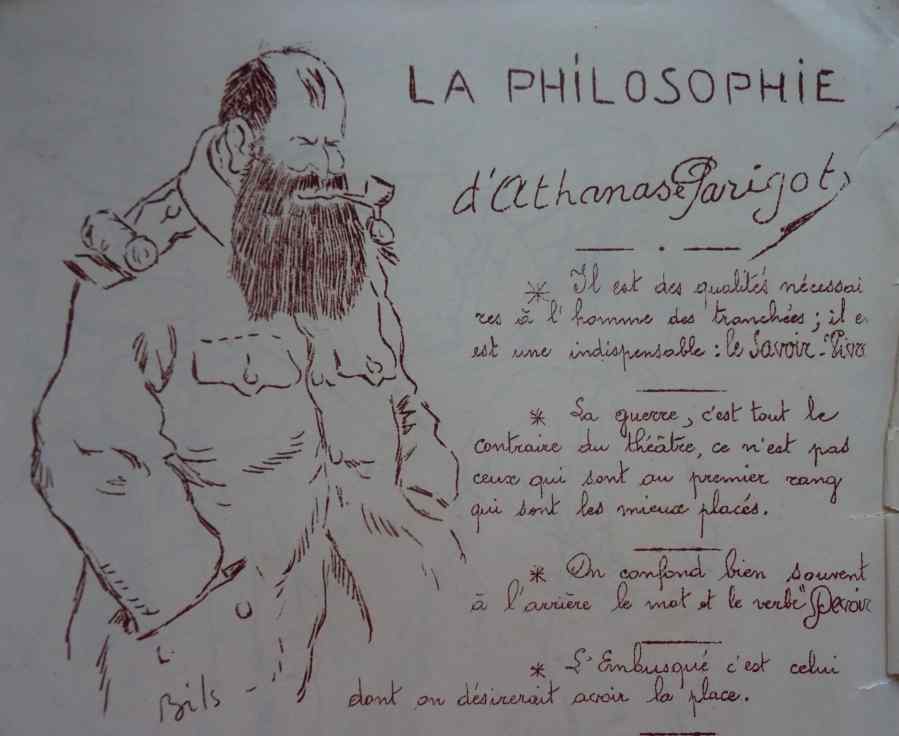 LA PHILOSOPHIE
d'Athanase Parigot
* Il est des qualités nécessai
res à l'homme des tranchées ; il e
est une indispensable : le Savoir-Vivr
* La guerre, c'est tout le
contraire du théâtre, ce n'est pas
ceux qui sont au premier rang
qui sont les mieux placés.
* On confond bien souvent
à l'arrière le mot et le verbe "Devoir
* L'Embusqué c'est celui
dont on désirerait avoir la place.
Bils